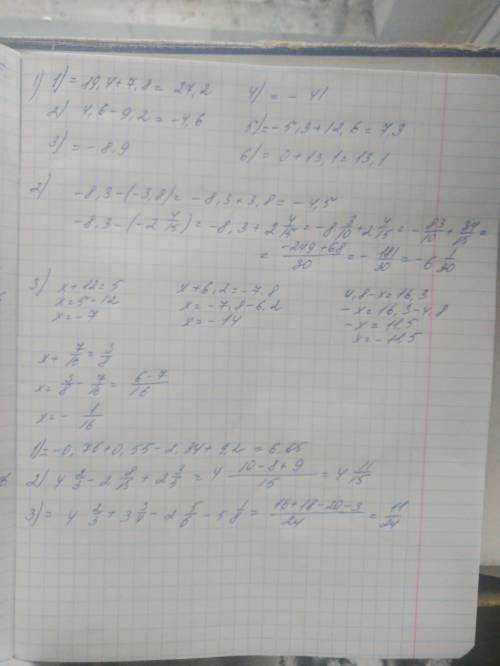 1) 1) = 19,4+7,8 = 27,2 4) = - 41
2) 4,6-9,2 = -4,6 5) = -5,3+12,6 = 7,3
3) = -8,9 6) = 0+13,1 = 13,1
2) -8,3-(-3,8) = -8,3+3,8 = -4,5
-8,3-(-2 7/15) = -8,3+2 7/15 = -8 3/10 + 2 7/15 = - 83/10 + 34/15 =
= -249+68/30 = - 181/30 = -6 1/30
3) x+12=5 x+6,2=-7,8 4,8-x=16,3
x=5-12 x=-7,8-6,2 -x=16,3-4,8
x=-7 x=-14 -x=11,5
x=-11,5
x+ 7/16 = 3/8
x= 3/8 - 7/16 = 6-7/16
x= - 1/16
1) = -0,76+0,55-2,34+9,2 = 6,65
2) 4 2/3 - 2 8/15 + 2 3/5 = 4 10-8+9/15 = 4 11/15
3) = 4 2/3 + 3 3/4 - 2 5/6 - 5 1/8 = 16+18-20-3/24 = 11/24